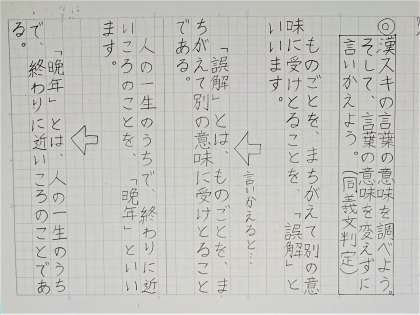 ◎漢スキの言葉の意味を調べよう。
そして、言葉の意味を変えずに
言いかえよう。(同義文判定)
ものごとを、まちがえて別の意
味に受けとることを、「誤解」と
いいます。
言いかえると…
「誤解」とは、ものごとを、ま
ちがえて別の意味に受けとること
である。
人の一生のうちで、終わりに近
いころのことを、「晩年」といい
ます。
「晩年」とは、人の一生のうち
で、終わりに近いころのことであ
る。